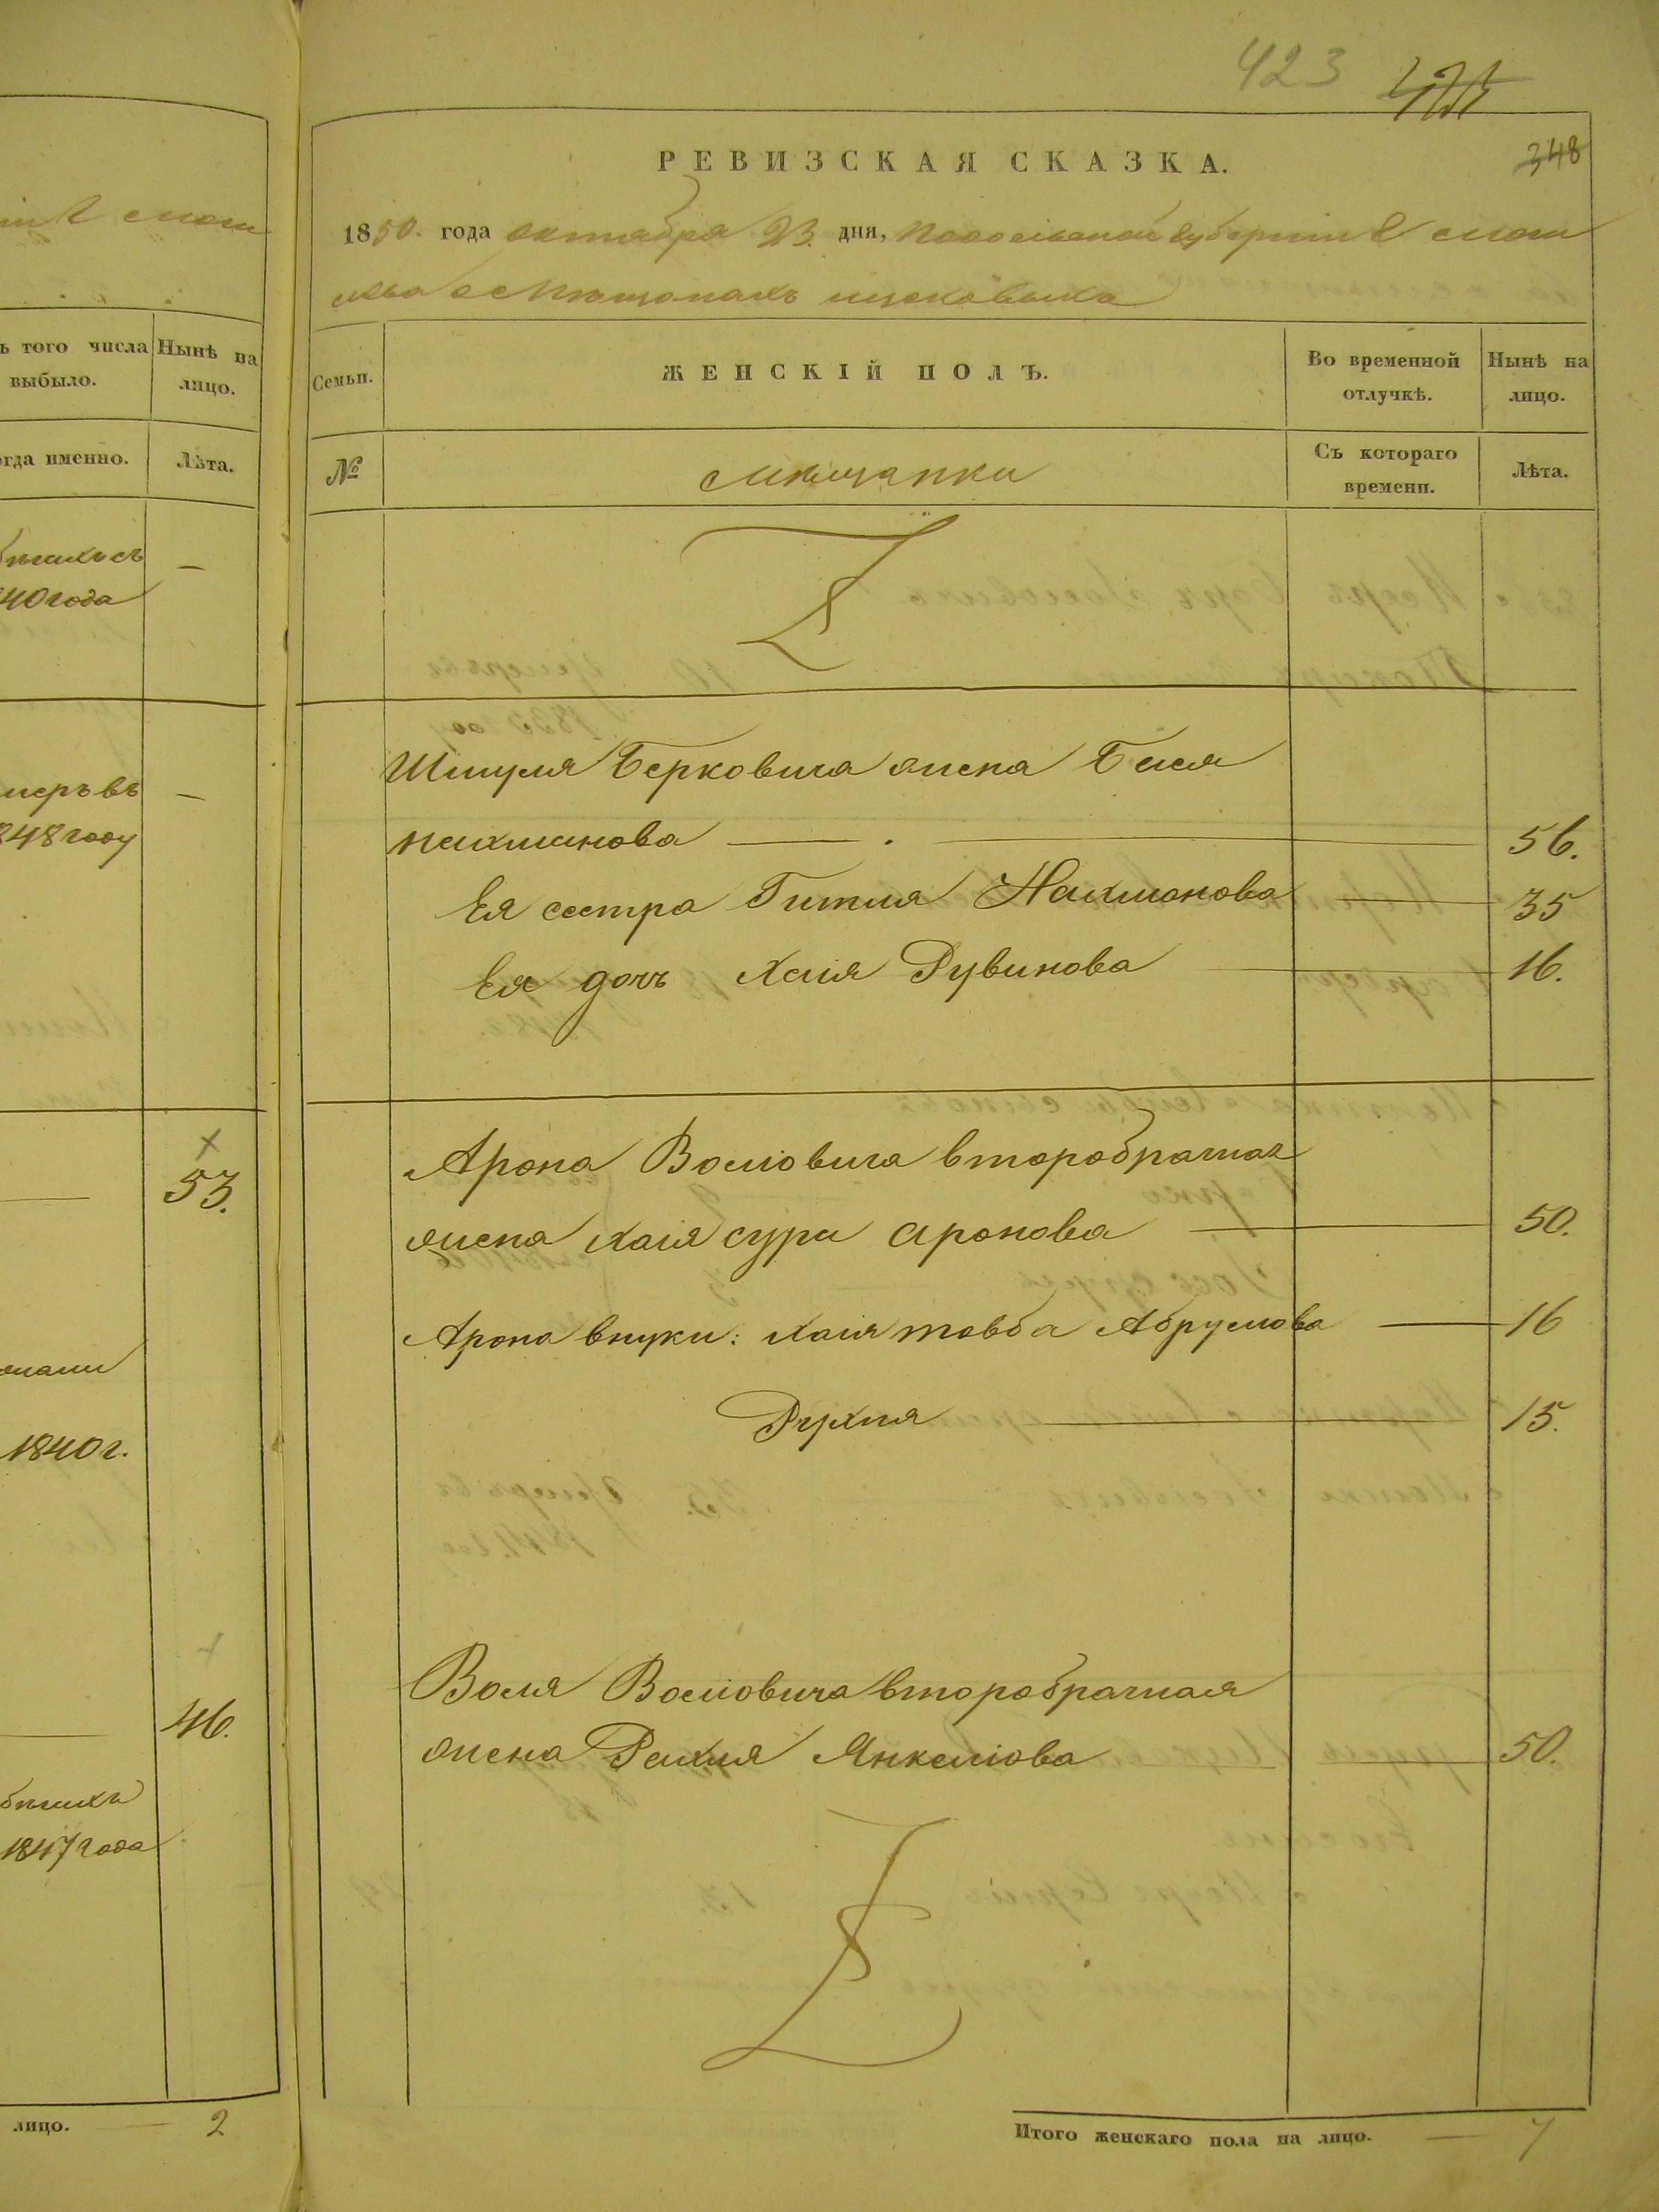 423
348
РЕВИЗСКАЯ СКАЗКА.
1850. года октября 23. дня, Подольской губерніи
о мѣщанахъ
Семьи. ЖЕНСКІЙ ПОЛЪ. Во временной отлучкѣ. Нынѣ на лицо.
№ мѣщанки Съ котораго времени. Лѣта.
Шмуля Берковича жена Бася
нахманова 56.
Ея сестра Гитля Нахманова 35
Ея дочь Хаія Рувинова 16.
Арона Волiовича второбрачная
жена хаія сура аронова 50.
Арона внуки: хаія товба Абрумова 16
Рухля 15.
Воля Волiовича второбрачная
жена Рахля Янкеліова 50.
Итого женскаго пола на лицо. 7
того числа выбыло. Нынѣ на лицо.
именно. Лѣта.
бѣгахъ съ —
40 года
меръ въ —
848 году
53.
1840 г.
46.
бѣгахъ
1847 года
лицо. 2